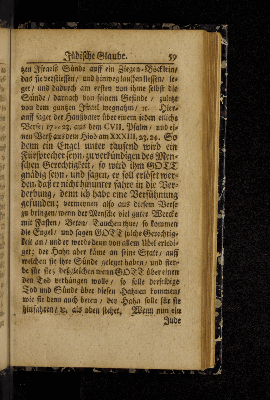 Jüdische Glaube. 59
gen Israels Sünde auff ein Ziegen-Böcklein/
das sie verstiessen/ und hinweg lauffen liessen/ le-
get/ und dadurch am ersten von ihne selbst die
Sünde/ darnach von seinem Gesinde/ zuletzt
von dem gantzen Israel wegnahm/ ꝛc. Hier-
auff saget der Haußvater über einem jeden etliche
Verse: 17--23. aus dem CVII. Psalm/ und ei-
nen Verß aus dem Hiob am XXXIII, 23.24. So
denn ein Engel unter tausend wird ein
Fürsprecher seyn/ zu verkündigen des Men-
schen Gerechtigkeit/ so wird ihm GOTT
gnädig seyn/ und sagen/ er soll erlöset wer-
den/ daß er nicht hinunter fahre in die Ver-
derbung/ denn ich habe eine Versühnung
gefunden; vermeinen also aus diesem Verse
zu bringen/ wenn der Mensche viel guter Wercke
mit Fasten/ Beten/ Tauchen thue/ so kommen
die Engel/ und sagen GOTT solche Gerechtig-
keit an/ und er werde denn von allem Übel erledi-
get; der Hahn aber käme an seine Statt/ auff
welchen sie ihre Sünde geleget haben/ und ster-
be für sie; deßgleichen wenn GOTT über einen
den Tod verhängen wolle/ so solle derselbige
Tod und Sünde über diesen Hahnen kommen/
wie sie denn auch beten/ der Hahn solle für sie
hinfahren/ ꝛc. als oben stehet. Wenn nun ein
Jude